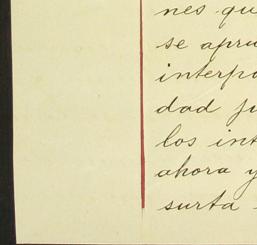 nes qu
se apru
interpo
dad ju
los int
ahora y
surta